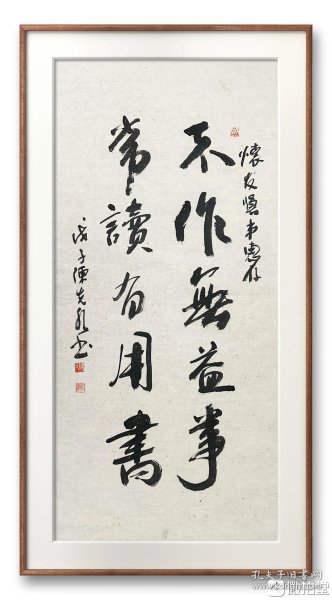 懷友賢弟惠存
不作無益事
常讀有用書
戊子陳先
書
孔夫子旧书网